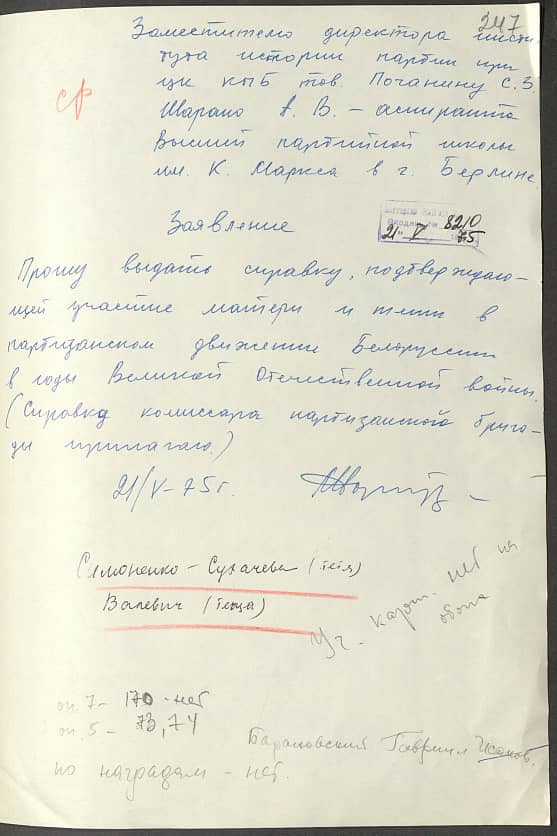 247
Заместителю директора инсти
тута истории партии при
ЦК КПБ тов. Почанину С.З.
ср
Шарапо А. В. – аспиранта
Высшей партийной школы
им. К. Маркса в г. Берлине.
8210
21 V 75
Заявление
Прошу выдать справку, подтверждаю–
щей участие матери и тёти в
партизанском движении Белоруссии
в годы Великой Отечественной войны.
(Справка комиссара партизанской брига–
ды прилагаю.)
21/V–75 г.
Симоненко – Сухачева (тётя)
Валевич (теща)
Уч. карт. нет на
обоих
оп. 7 – 170 – нет
оп. 5 – 73, 74
Барановский Гавриил Исаков.
по наградам – нет.